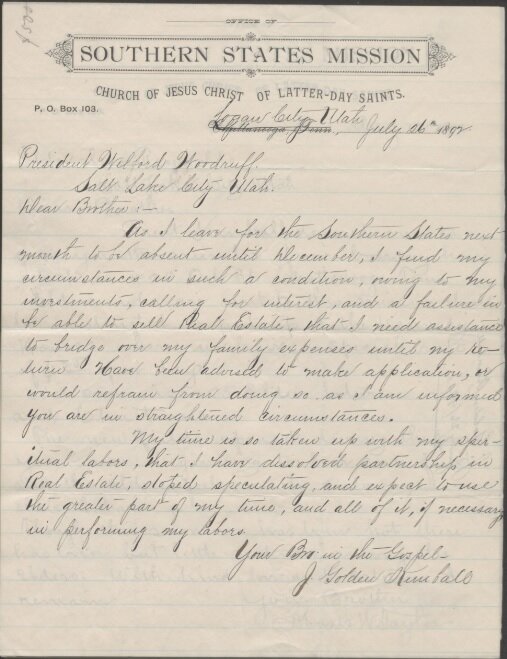 OFFICE OF
SOUTHERN STATES MISSION
CHURCH OF JESUS CHRIST OF LATTER-DAY SAINTS.
P. O. Box 103.
Logan City, Utah
Chattanooga, Tenn., July 26th 1892
President Wilford Woodruff.
Salt Lake City Utah.
Dear Brother:-
As I leave for the Southern States next
month to be absent until December, I find my
circumstances in such a condition, owing to my
investments, calling for interest, and a failure in
be able to sell Real Estate, that I need assistance
to bridge over my family expenses until my re-
turn. Have been advised to make application, or
would refrain from doing so as I am informed
you are in straightened circumstances.
My time is so taken up with my sper-
itual labors, that I have dissolved partnership in
Real Estate, stoped speculating, and expect to use
the greater part of my time, and all of it, if necessary
in performing my labors.
Your Bro in the Gospel-
J Golden Kimball